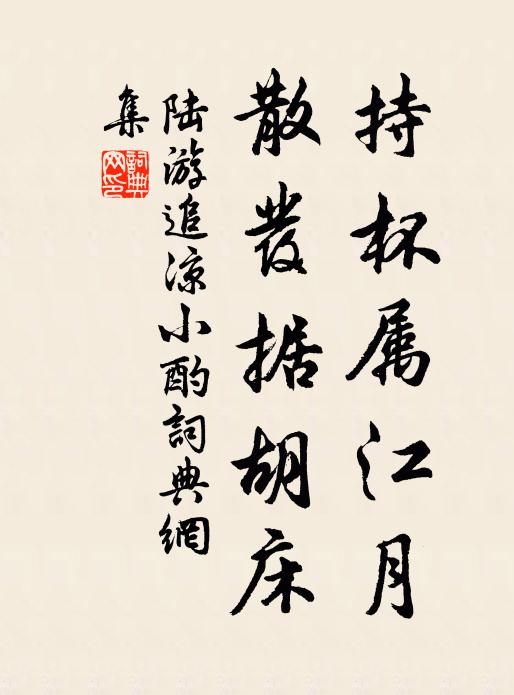 持杯属江月
散发据胡床
陆游追凉小酌詞典網
集
詞典网印